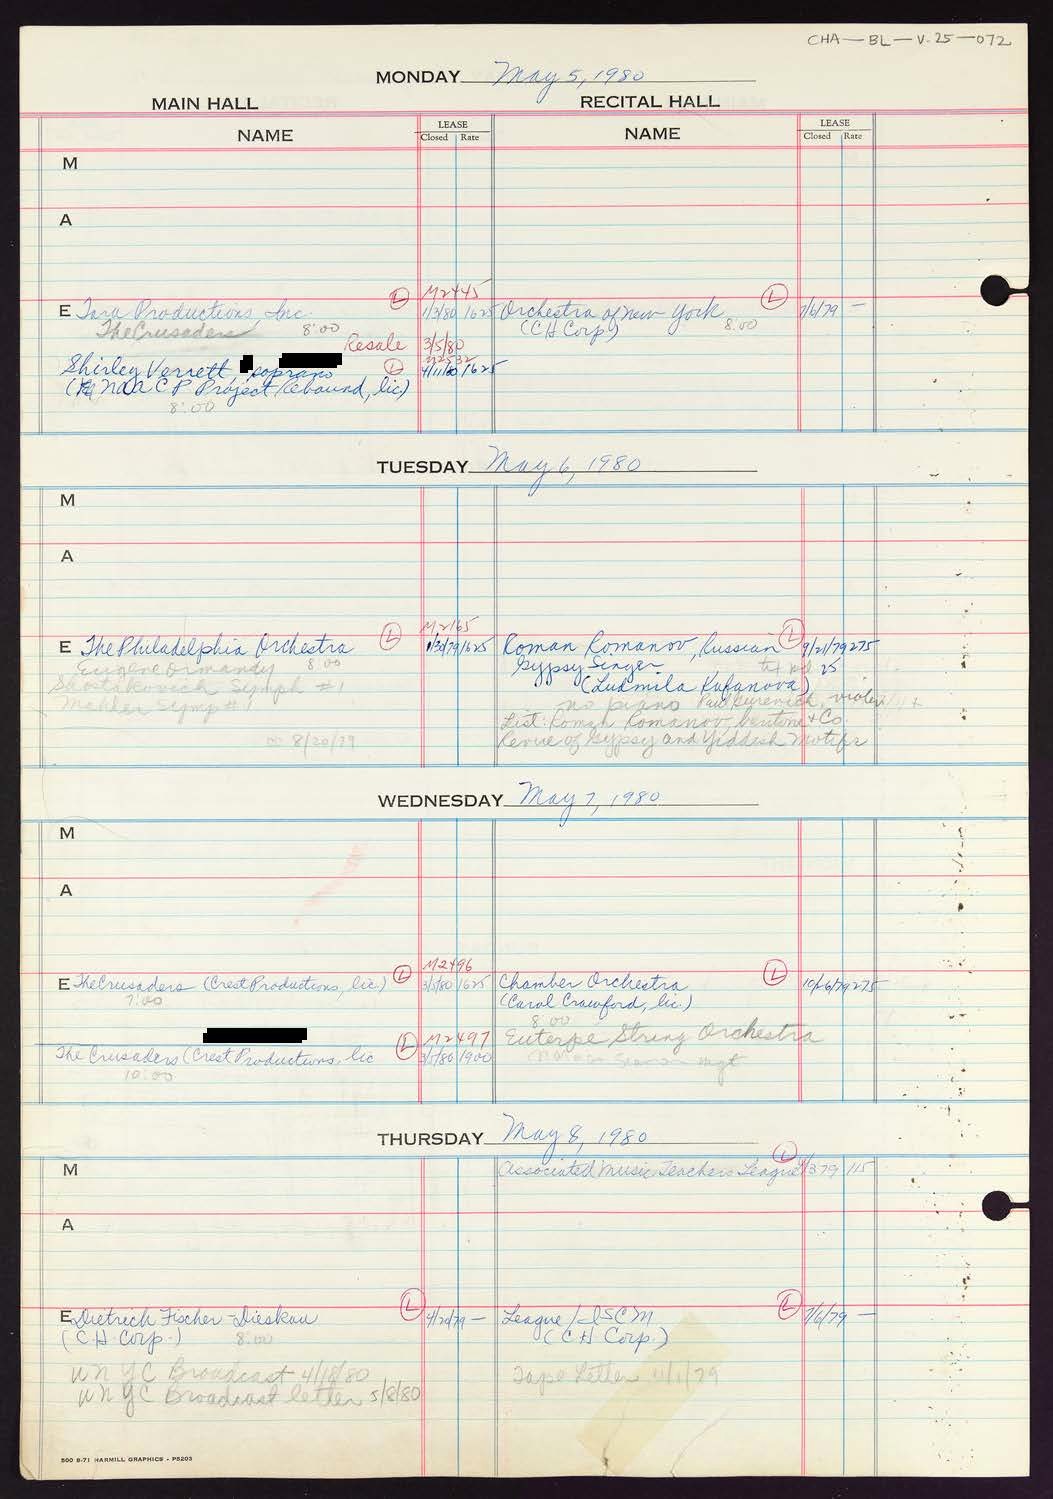 CHA—BL—V.25—072
MONDAY May 5, 1980
MAIN HALL RECITAL HALL
NAME LEASE Closed Rate NAME LEASE Closed Rate
M
A
M2445
E Tara Productions Inc. L 1/3/80 1625 Orchestra of New York L 7/6/79 —
The Crusaders 8:00 (CH Corp) 8:00
Resale 3/5/80
M2532
Shirley Verrett, soprano L 4/11/80 1625
(NAACP Project Rebound, lic)
8:00
TUESDAY May 6, 1980
M
A
M2165
E The Philadelphia Orchestra L 1/30/79 1625 Roman Romanov, Russian L 9/21/79 275
Eugene Ormandy 8:00 Gypsy Singer 25
Shostakovich Symph #1 (Ludmila Kafanova)
Mahler Symp #1 no piano Paul Gurevich, violin
List: Roman Romanov, & Co.
8/20/79 Revue of Gypsy and Yiddish Motifs
WEDNESDAY May 7, 1980
M
A
M2496
E The Crusaders (Crest Productions, lic) L 3/5/80 1625 Chamber Orchestra L 275
7:00 (Carol Crawford, lic.)
8:00
M2497 Euterpe String Orchestra
The Crusaders (Crest Productions, lic L 3/5/80 1900 mgt
10:00
THURSDAY May 8, 1980
M Associated Music Teachers League L 115
A
E Dietrich Fischer-Dieskau L — League/ISCM L 7/6/79 —
(CH Corp.) 8:00 (CH Corp.)
WNYC Broadcast 4/18/80 Tape Letter
WNYC Broadcast letter 5/8/80
500 8-71 HARMILL GRAPHICS - P5203